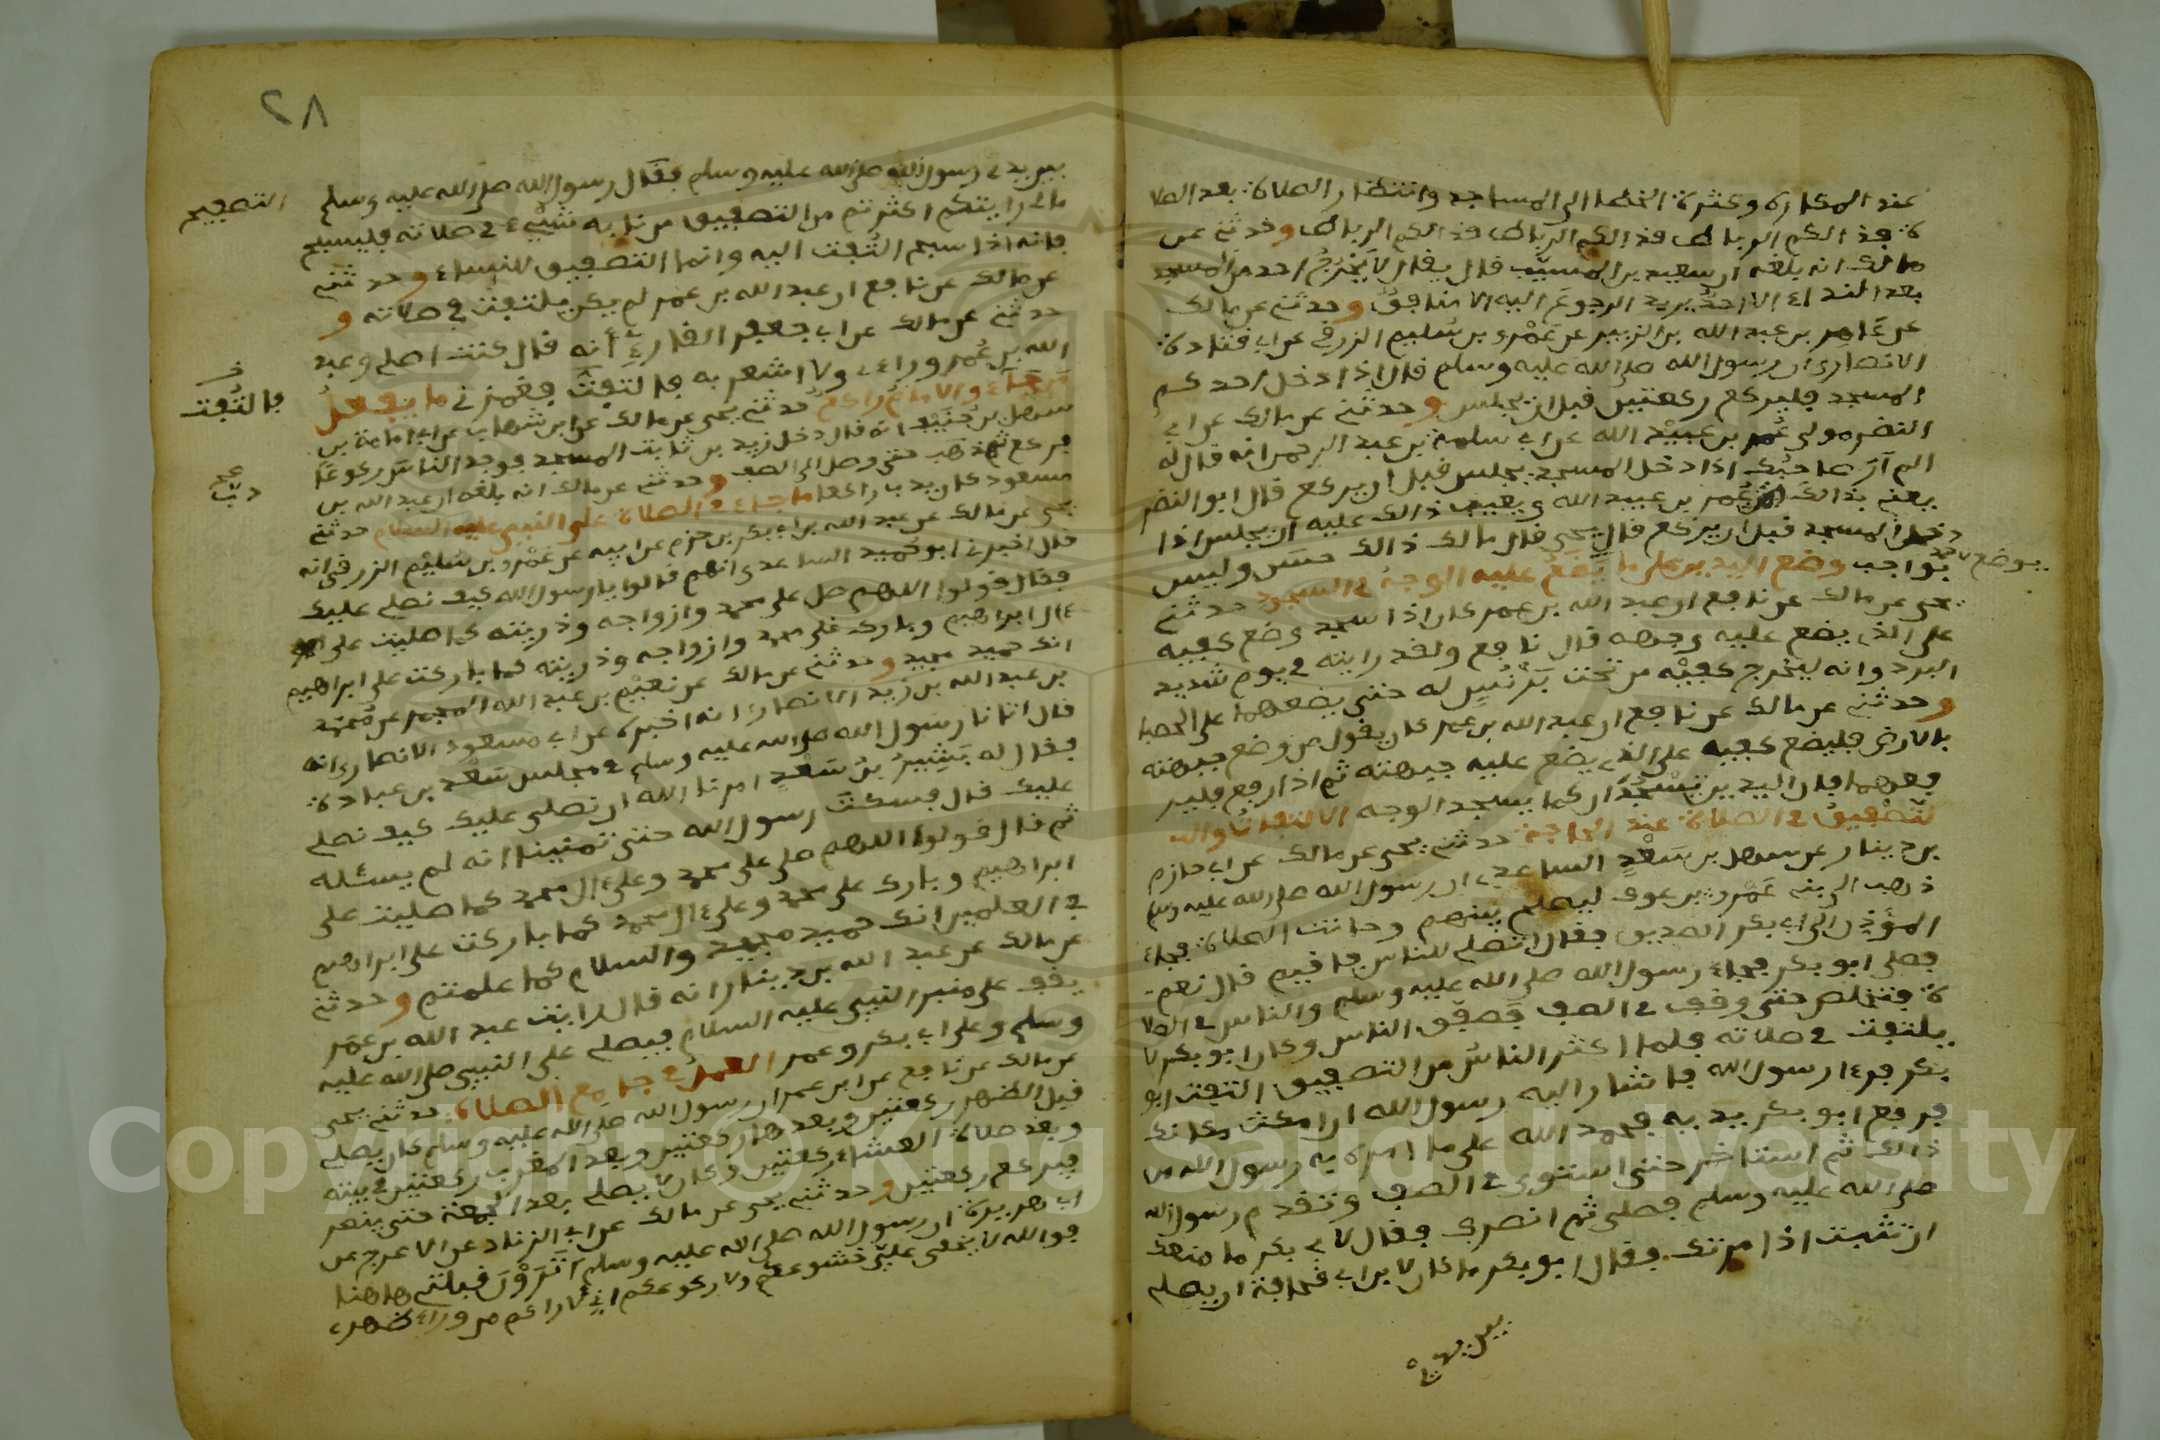 عند المكاره وكثرة الخطا الى المساجد وانتظار الصلاة بعد الصلا
ة فذالكم الرباط فذالكم الرباط فذالكم الرباط وحدثني عن
مالك انه بلغه ان سعيد بن المسيب قال يقال لا يخرج احد من المسجد
بعد النداء الا احد يريد الرجوع اليه الا منافق وحدثني عن مالك
عن عامر بن عبد الله بن الزبير عن عمرو بن سليم الزرقي عن ابي قتادة
الانصاري ان رسول الله صلى الله عليه وسلم قال اذا دخل احدكم
المسجد فليركع ركعتين قبل ان يجلس وحدثني عن مالك عن ابي
النضر مولى عمر بن عبيد الله عن ابي سلمة بن عبد الرحمن انه قال له
الم أر صاحبك اذا دخل المسجد يجلس قبل ان يركع قال ابو النضر
يعني بذالك عمر بن عبيد الله ويعيب ذالك عليه ان يجلس اذا
دخل المسجد قبل ان يركع قال يحيى قال مالك ذالك حسن وليس
بواجب وضع اليدين على ما يوضع عليه الوجه في السجود حدثني
يحيى عن مالك عن نافع ان عبد الله بن عمر كان اذا سجد وضع كفيه
على الذي يضع عليه وجهه قال نافع ولقد رايته في يوم شديد
البرد وانه ليخرج كفيه من تحت برنس له حتى يضعهما على الحصبا
وحدثني عن مالك عن نافع ان عبد الله بن عمر كان يقول من وضع جبهته
بالارض فليضع كفيه على الذي يضع عليه جبهته ثم اذا رفع فلير
فعهما فان اليدين تسجدان كما يسجد الوجه الالتفات والت
لتصفيق في الصلاة عند الحاجة حدثني يحيى عن مالك عن ابي حازم
بن دينار عن سهل بن سعد الساعدي ان رسول الله صلى الله عليه وسلم
ذهب الى بني عمرو بن عوف ليصلح بينهم وحانت الصلاة فجاء
المؤذن الى ابي بكر الصديق فقال اتصلي للناس فاقيم قال نعم
فصلى ابو بكر فجاء رسول الله صلى الله عليه وسلم والناس في الصلا
ة فتخلص حتى وقف في الصف فصفق الناس وكان ابو بكر لا
يلتفت في صلاته فلما اكثر الناس من التصفيق التفت ابو
بكر فرءا رسول الله فاشار اليه رسول الله ان امكث مكانك
فرفع ابو بكر يديه فحمد الله على ما امره به رسول الله من
ذالك ثم استاخر حتى استوى في الصف وتقدم رسول الله
صلى الله عليه وسلم فصلى ثم انصرف فقال لابي بكر ما منعك
ان تثبت اذ امرتك فقال ابو بكر ما كان لابن ابي قحافة ان يصلي
بين يدي
٢٨
بين يدي رسول الله صلى الله عليه وسلم فقال رسول الله صلى الله عليه وسلم
مالي رايتكم اكثرتم من التصفيق من نابه شيء في صلاته فليسبح
فانه اذا سبح التفت اليه وانما التصفيق للنساء وحدثني
عن مالك عن نافع ان عبد الله بن عمر لم يكن يلتفت في صلاته و
حدثني عن مالك عن ابي جعفر القارئ أنه قال كنت اصلي وعبد
الله بن عمر وراءي ولا اشعر به فالتفت فغمزني ما يفعل
من جاء والامام راكع حدثني يحيى عن مالك عن ابن شهاب عن ابي امامة بن
سهل بن حنيف انه قال دخل زيد بن ثابت المسجد فوجد الناس ركوعا
فركع ثم دب حتى وصل الى الصف وحدثني عن مالك انه بلغه ان عبد الله بن
مسعود كان يدب راكعا ما جاء في الصلاة على النبي عليه السلام حدثني
يحيى عن مالك عن عبد الله بن ابي بكر بن حزم عن ابيه عن عمرو بن سليم الزرقي انه
قال اخبرني ابو حميد الساعدي انهم قالوا يا رسول الله كيف نصلي عليك
فقال قولوا اللهم صل على محمد وازواجه وذريته كما صليت على
ءال ابراهيم وبارك على محمد وازواجه وذريته كما باركت على ابراهيم
انك حميد مجيد وحدثني عن مالك عن نعيم بن عبد الله المجمر عن محمد
بن عبد الله بن زيد الانصاري انه اخبره عن ابي مسعود الانصاري انه
قال اتانا رسول الله صلى الله عليه وسلم في مجلس سعد بن عبادة
فقال له بشير بن سعد امرنا الله ان نصلي عليك كيف نصلي
عليك قال فسكت رسول الله حتى تمنينا انه لم يسئله
ثم قال قولوا اللهم صل على محمد وعلى ءال محمد كما صليت على
ابراهيم وبارك على محمد وعلى ءال محمد كما باركت على ابراهيم
في العلمين انك حميد مجيد والسلام كما علمتم وحدثني
عن مالك عن عبد الله بن دينار انه قال رايت عبد الله بن عمر
يقف على منبر النبي عليه السلام فيصلي على النبي صلى الله عليه
وسلم وعلى ابي بكر وعمر العمل في جامع الصلاة حدثني يحيى
عن مالك عن نافع عن ابن عمر ان رسول الله صلى الله عليه وسلم كان يصلي
قبل الظهر ركعتين وبعدها ركعتين وبعد المغرب ركعتين في بيته
وبعد صلاة العشاء ركعتين وكان لا يصلي بعد الجمعة حتى ينصر
فيركع ركعتين وحدثني يحيى عن مالك عن ابي الزناد عن الاعرج عن
ابي هريرة ان رسول الله صلى الله عليه وسلم اترون قبلتي هاهنا
فوالله لا يخفى علي خشوعكم ولا ركوعكم اني لاراكم من وراء ظهري
التصفيح
فالتفت
دب
Copyright © King Saud University